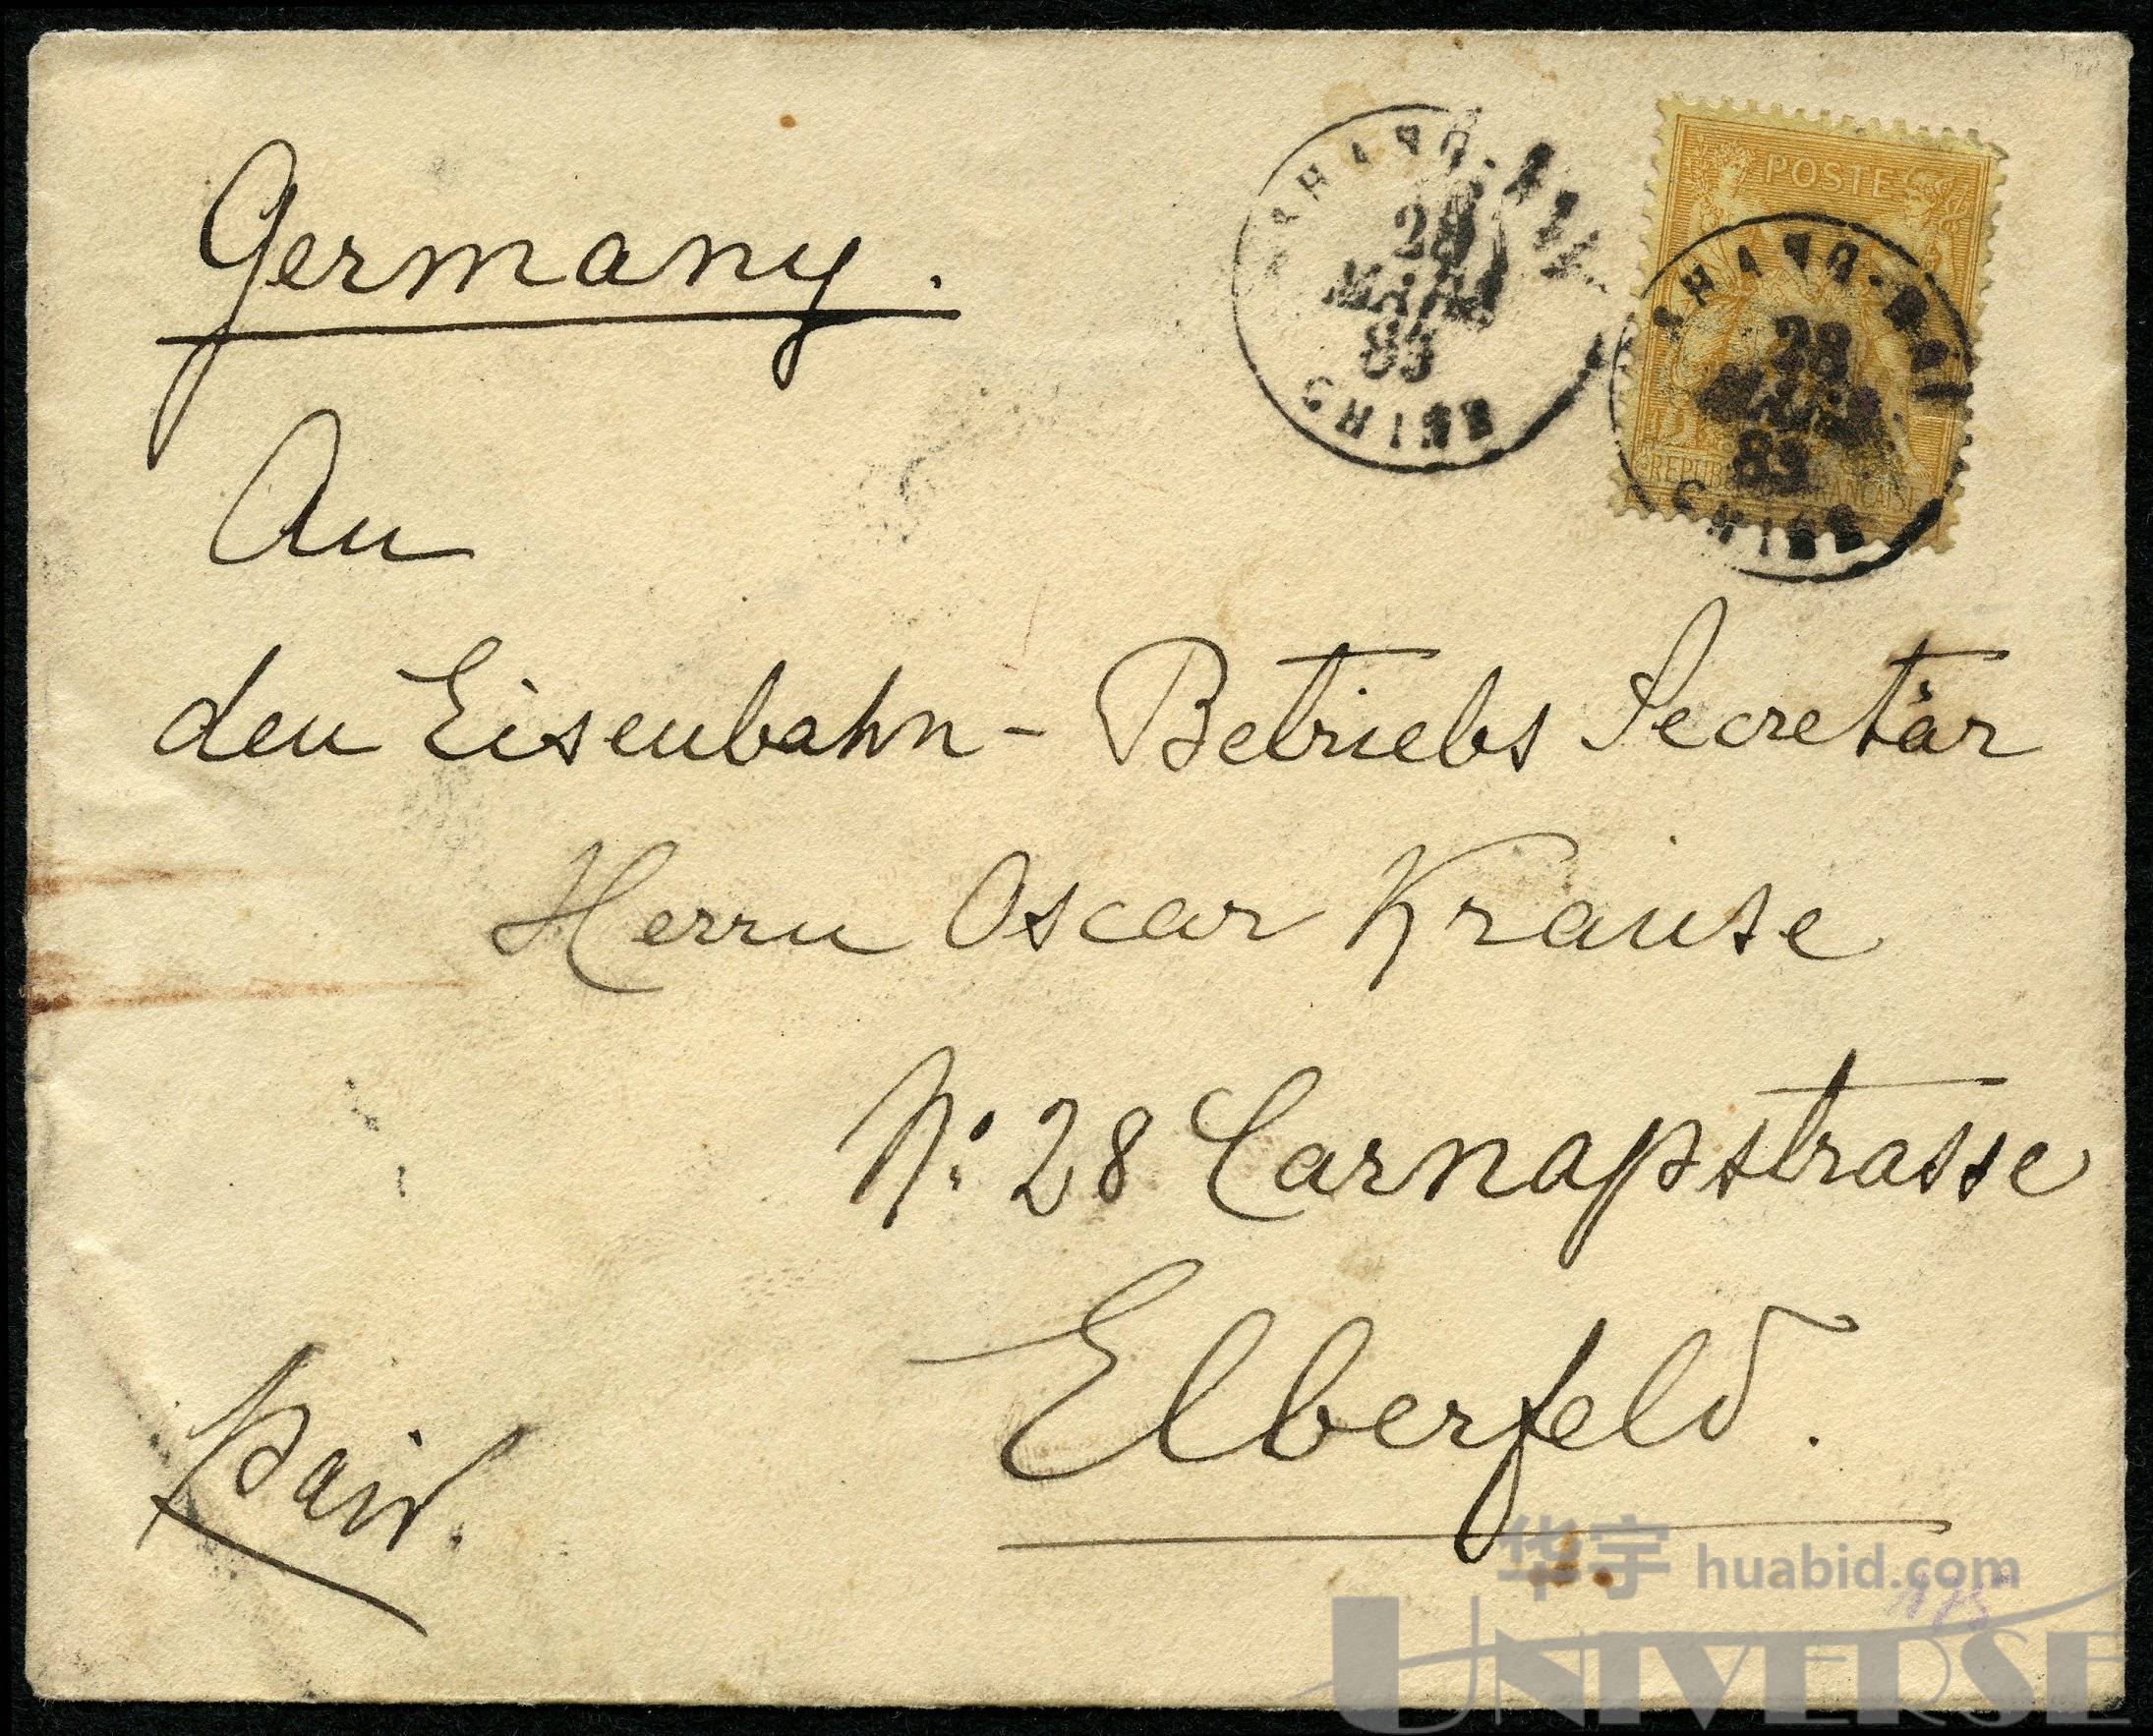 Germany.
An
den Eisenbahn- Betriebs Secretär
Herrn Oscar Krause
No: 28 Carnapstrasse
Elberfeld.
paid.
SHANG-HAI
28
MARS
83
CHINE
POSTE
SHANG-HAI
28
MARS
83
REPUBLIQUE FRANCAISE
CHINE
华宇 huabid.com
175
UNIVERSE